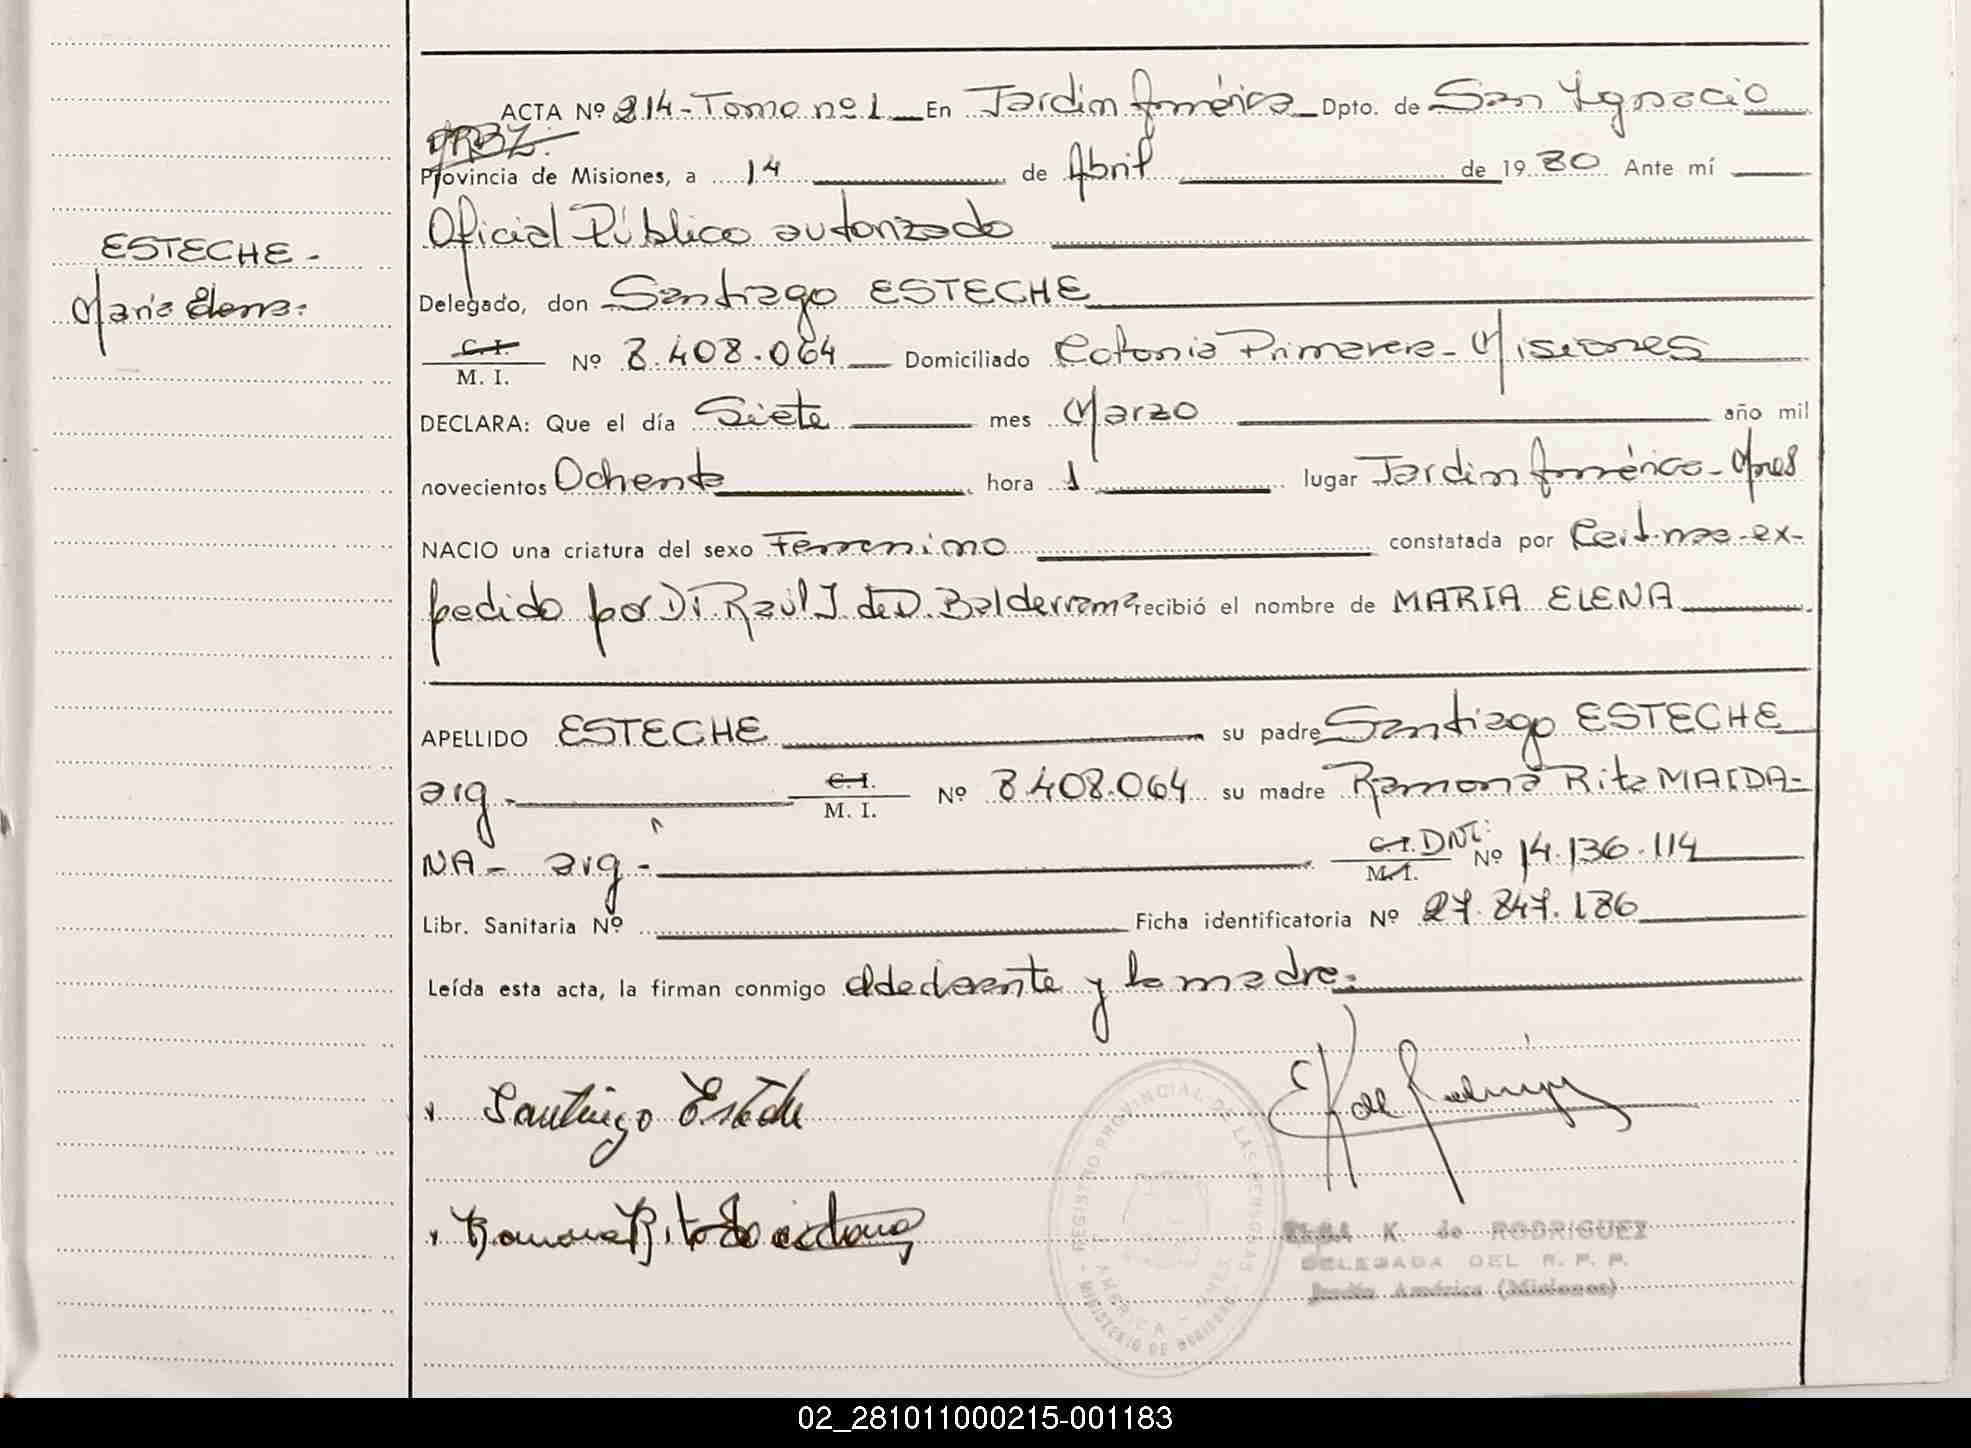 ACTA Nº 214-Tomo nº 1 En Jardín América Dpto. de San Ignacio
Provincia de Misiones, a 14 de Abril de 1980 Ante mí
Oficial Público autorizado
ESTECHE-
María Elena:
Delegado, don Santiago ESTECHE
C. I.
M. I. Nº 8.408.064 Domiciliado Colonia Primavera-Misiones
DECLARA: Que el día Siete mes Marzo año mil
novecientos Ochenta hora 1 lugar Jardín América-Mnes
NACIO una criatura del sexo Femenino constatada por Cert.nac-ex-
pedido por Dr. Raúl J. de D. Balderrama recibió el nombre de MARIA ELENA
APELLIDO ESTECHE su padre Santiago ESTECHE
arg- C. I.
M. I. Nº 8.408.064 su madre Ramona Rita MAIDA-
NA- arg- C. I. DNI:
M. I. Nº 14.136.114
Libr. Sanitaria Nº Ficha identificatoria Nº 27.847.186
Leída esta acta, la firman conmigo el declarante y la madre:
Santiago Esteche
Ramona Rita
REGISTRO PROVINCIAL DE LAS PERSONAS
MINISTERIO DE GOBIERNO
AMERICA - MNES
ELBA K. de RODRIGUEZ
DELEGADA DEL R. P. P.
Jardín América (Misiones)
02_281011000215-001183